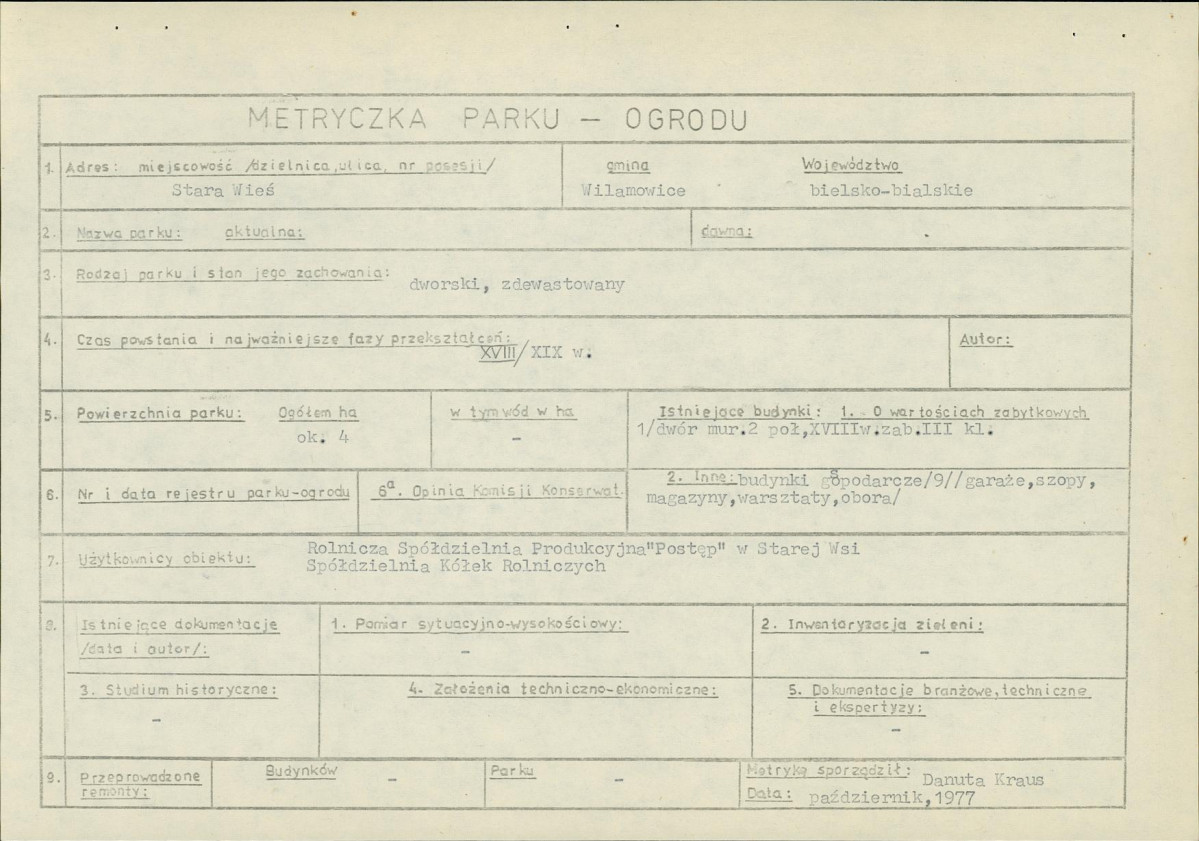 METRYCZKA PARKU – OGRODU
1. Adres: miejscowość /dzielnica,ulica, nr posesji/
Stara Wieś
gmina
Wilamowice
Województwo
bielsko-bialskie
2. Nazwa parku: aktualna:
dawna:
3. Rodzaj parku i stan jego zachowania:
dworski, zdewastowany
4. Czas powstania i najważniejsze fazy przekształceń:
XVIII/XIX w.
Autor:
5. Powierzchnia parku: Ogółem ha
ok. 4
w tym wód w ha
–
Istniejące budynki: 1. O wartościach zabytkowych
1/dwór mur.2 poł,XVIIIw.zab.III kl.
6. Nr i data rejestru parku-ogrodu
6a. Opinia Komisji Konserwat.
2. Inne: budynki gospodarcze/9//garaże,szopy,
magazyny,warsztaty,obora/
7. Użytkownicy obiektu:
Rolnicza Spółdzielnia Produkcyjna"Postęp" w Starej Wsi
Spółdzielnia Kółek Rolniczych
8. Istniejące dokumentacje
/data i autor/:
1. Pomiar sytuacyjno-wysokościowy:
–
2. Inwentaryzacja zieleni:
–
3. Studium historyczne:
–
4. Założenia techniczno-ekonomiczne:
5. Dokumentacje branżowe, techniczne
i ekspertyzy:
–
9. Przeprowadzone
remonty:
Budynków –
Parku –
Metrykę sporządził: Danuta Kraus
Data: październik,1977